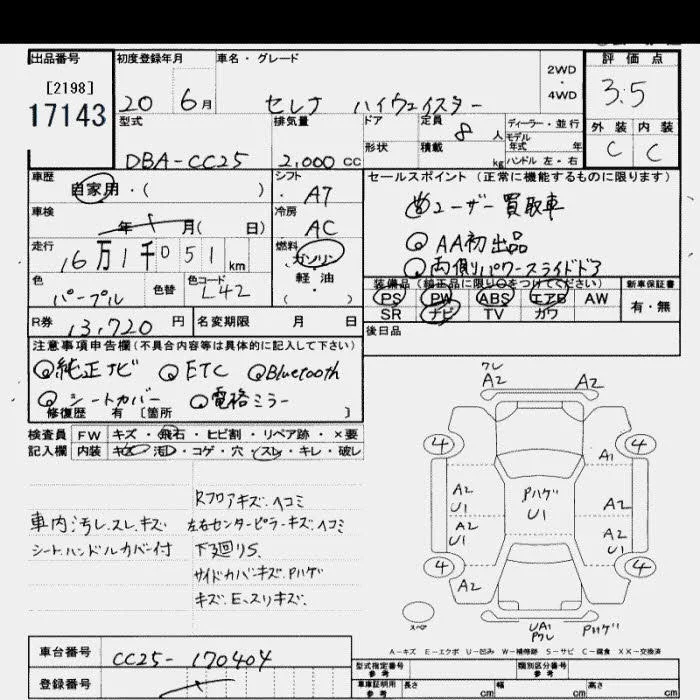 出品番号 初度登録年月 車名・グレード 評価点
[2198]
17143
20 6月 セレナ ハイウェイスター 2WD・4WD 3.5
型式 排気量 ドア 定員 8人 ディーラー・並行
モデル年式 年
外装 内装
DBA-CC25 2,000 CC 形状 積載 kg ハンドル 左・右 C C
車歴 自家用・( ) シフト A7
セールスポイント(正常に機能するものに限ります)
ユーザー買取車
車検 年 月( 日) 冷房 AC
AA初出品
走行 16万1千051km 燃料 ガソリン・軽油・( )
両側パワースライドドア
色 パープル 色替 色コード L42
装備品(純正品に限り○をつけてください) 新車保証書
PS PW ABS エアB AW 有・無
SR ナビ TV カワ
R券 13,720円 名変期限 月 日
後日品
注意事項申告欄(不具合内容等は具体的に記入して下さい)
純正ナビ ETC Bluetooth
シートカバー 電格ミラー
修復歴 有 〔箇所 〕
検査員 FW キズ・飛石・ヒビ割・リペア跡・×要
記入欄 内装 キズ・汚レ・コゲ・穴・スレ・キレ・破レ
Rフロアキズ.ヘコミ
車内汚レ.スレ.キズ 左右センターピラーキズ.ヘコミ
シート.ハンドルカバー付 下廻りS.
サイドカバーキズ.Pハゲ
キズ.E.スリキズ.
クレ
A2 A2
4 4
A1
A2 U1 PハゲU1 A2
A2 U1 A2 U1
4 4
A2
スペア UA1 Pクレ Pハゲ
A−キズ E−エクボ U−凹み W−補修跡 S−サビ C−腐食 XX−交換済
車台番号 CC25-170404
登録番号
型式指定番号 参考 類別区分番号 参考
車庫証明用 参考 長さ cm 幅 cm 高さ cm